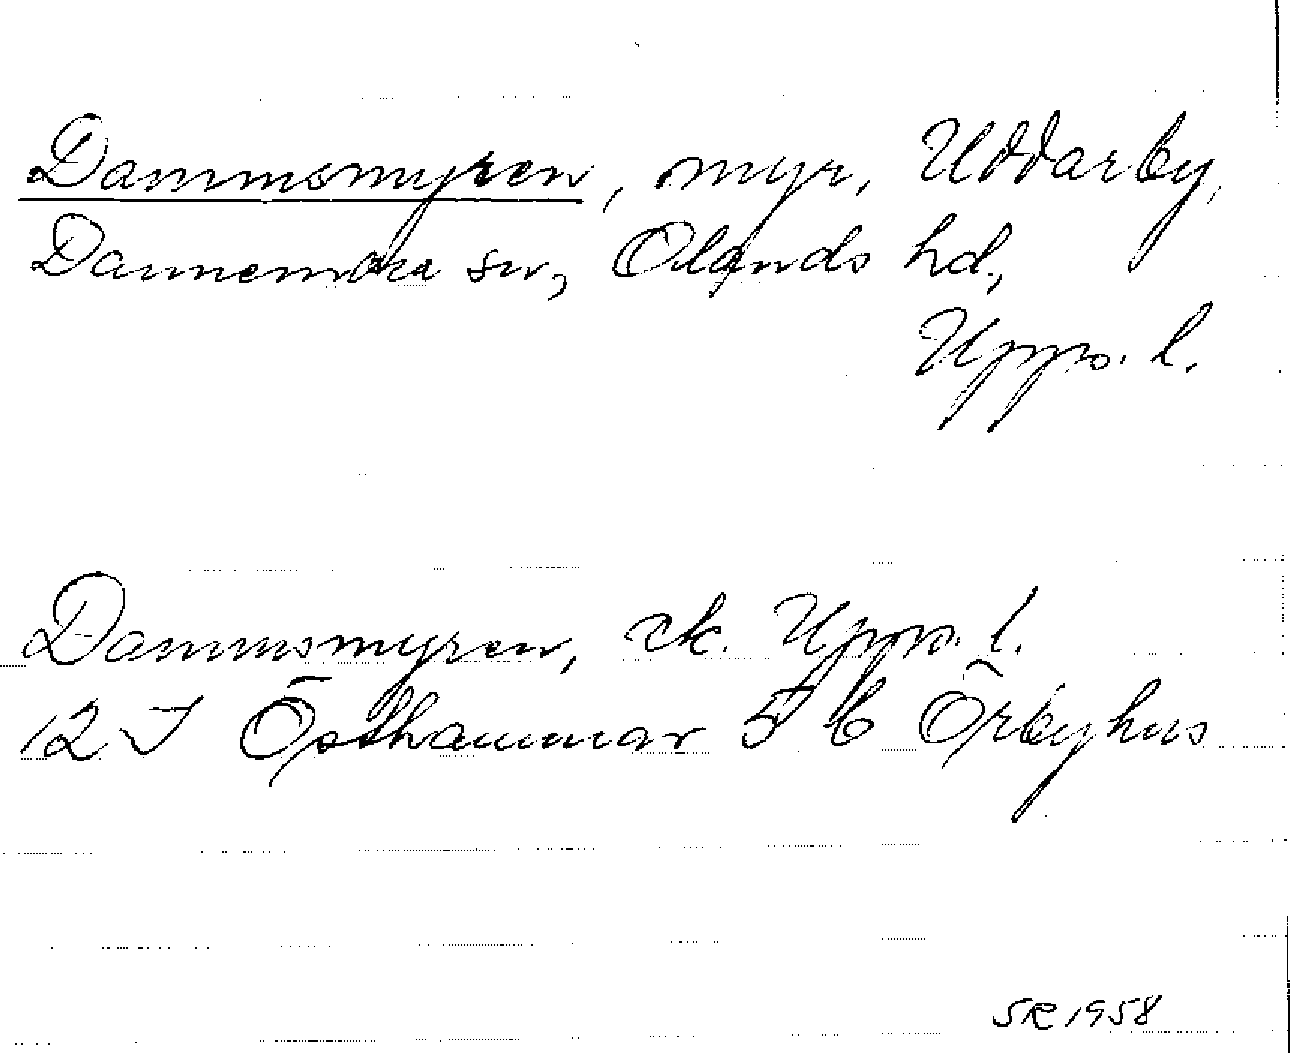 Dammsmyren, myr, Uddarby,
Dannemora sn, Olands hd,
Upps. l.
Dammsmyren, ek. Upps. l.
12 I Östhammar 5 b Örbyhus
SR 1958